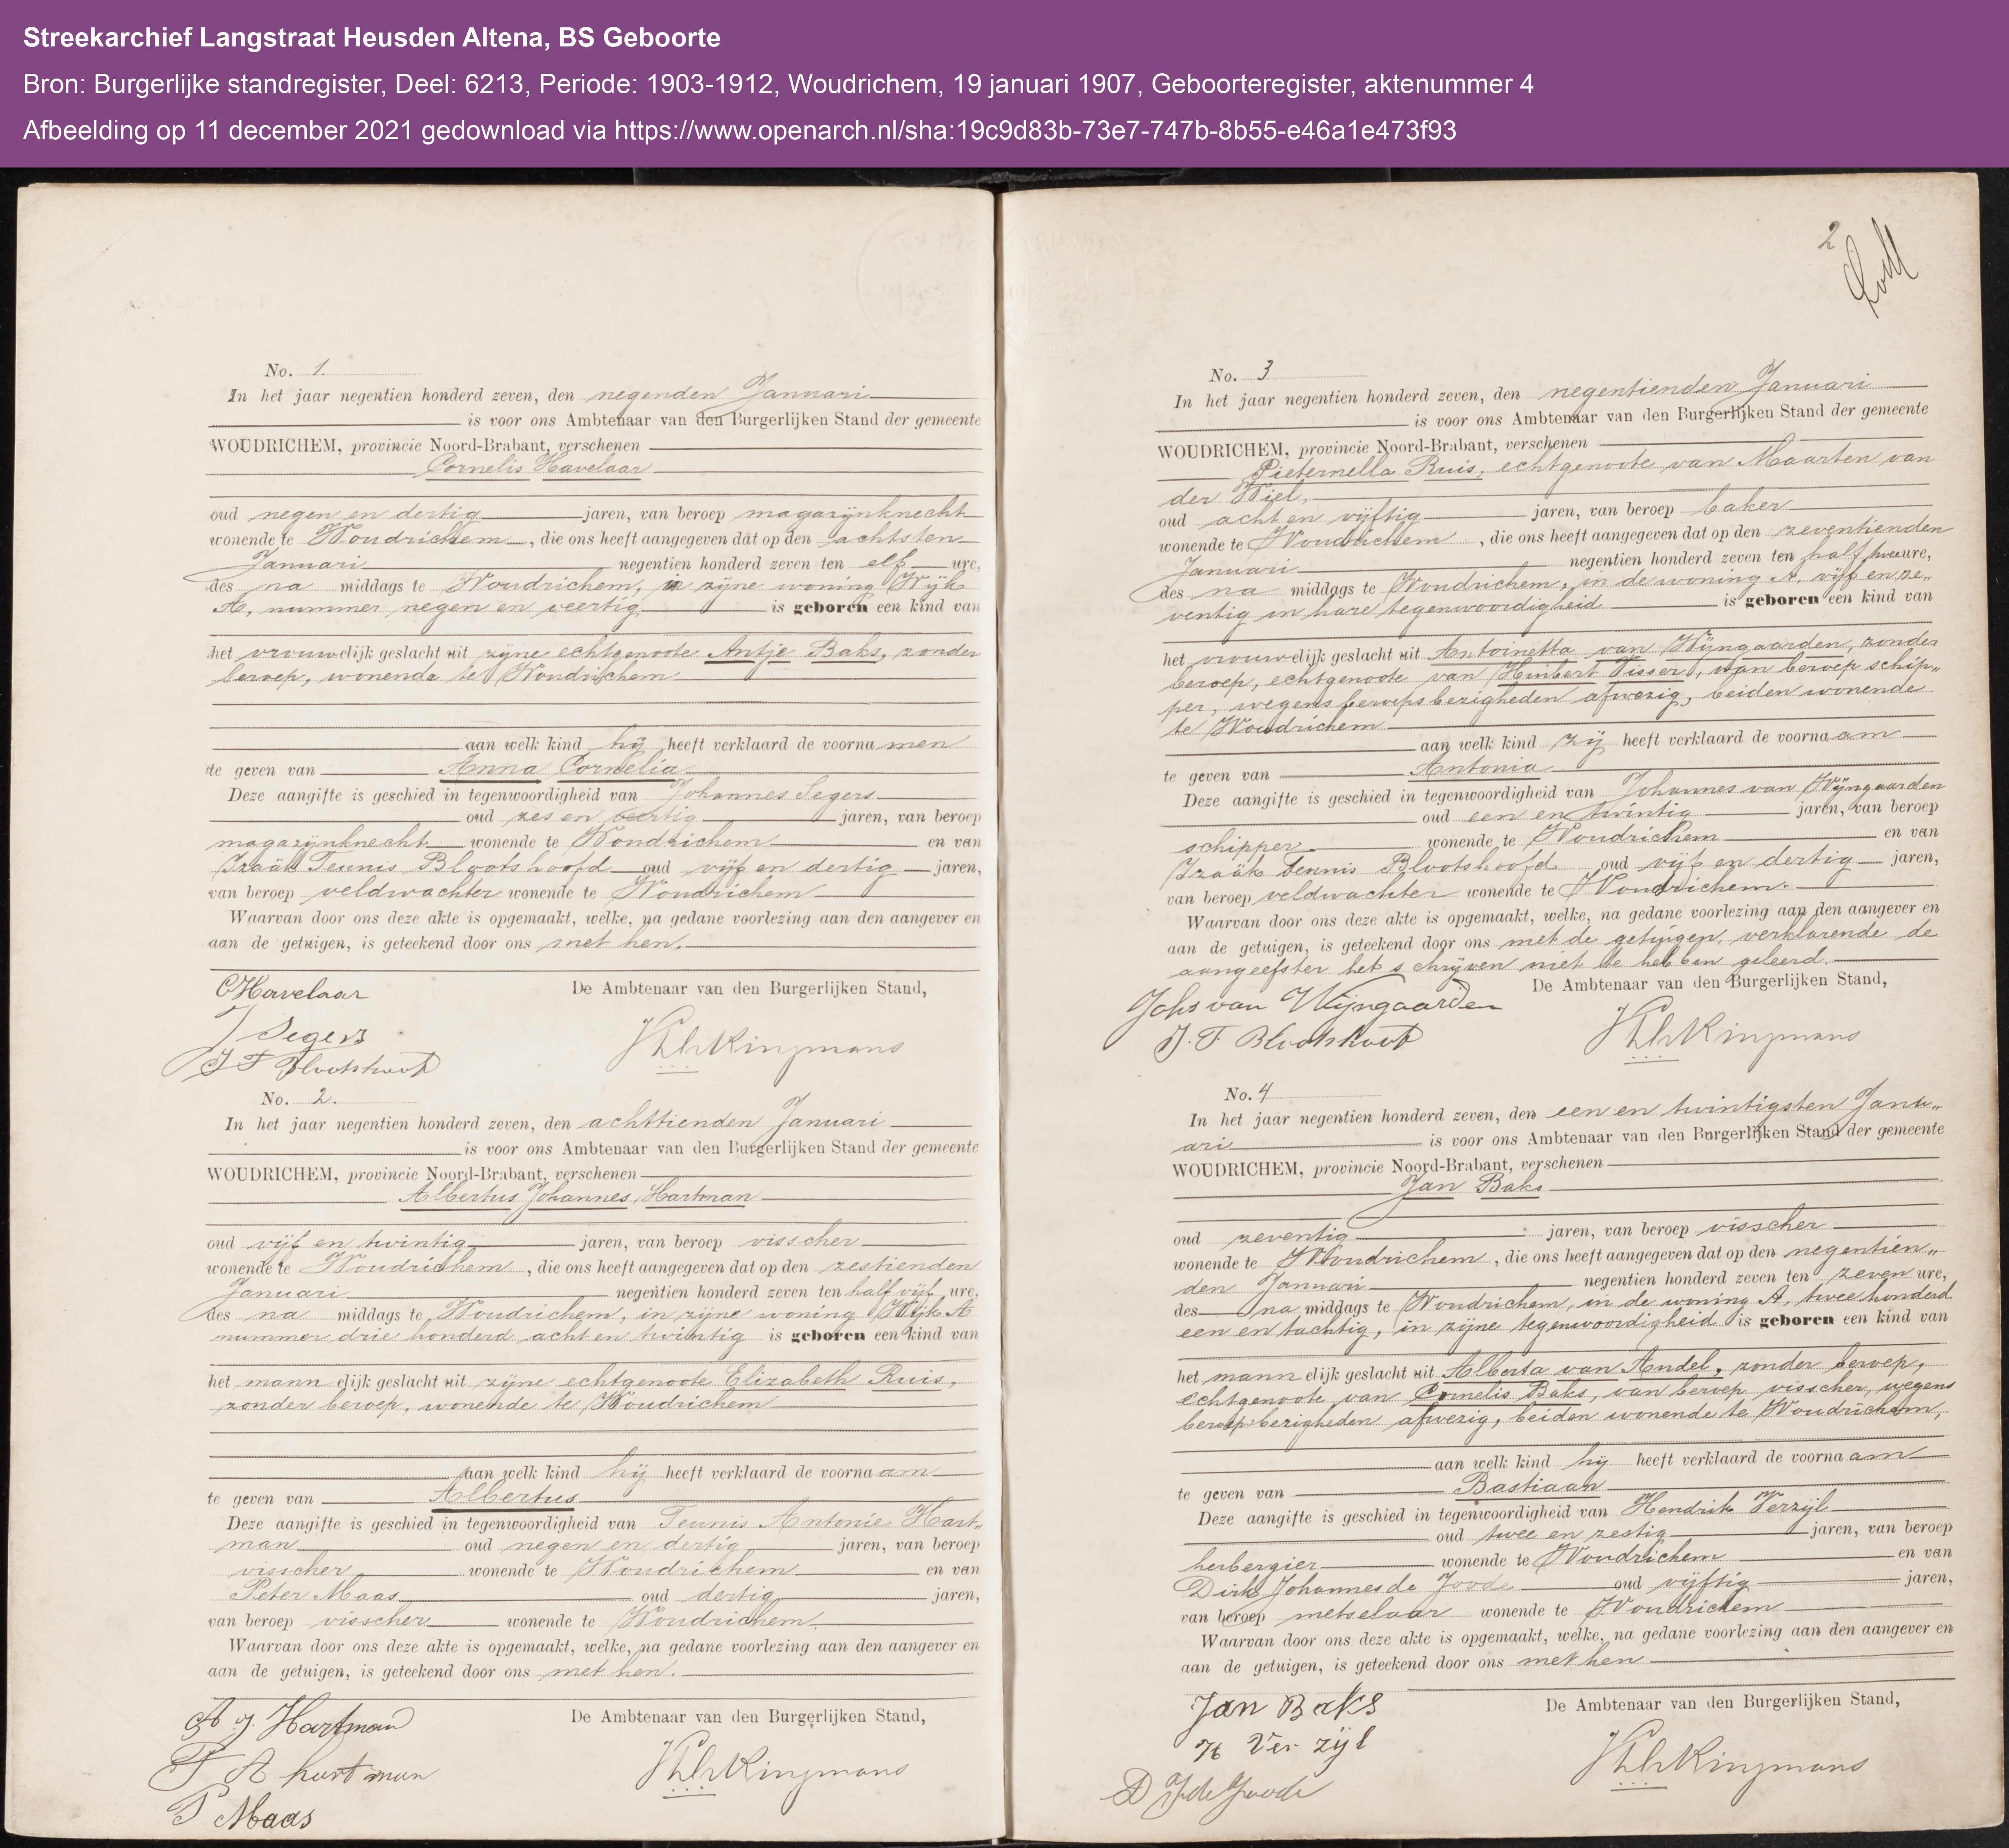 Streekarchief Langstraat Heusden Altena, BS Geboorte
Bron: Burgerlijke standregister, Deel: 6213, Periode: 1903-1912, Woudrichem, 19 januari 1907, Geboorteregister, aktenummer 4
Afbeelding op 11 december 2021 gedownload via https://www.openarch.nl/sha:19c9d83b-73e7-747b-8b55-e46a1e473f93
No. 1.
In het jaar negentien honderd zeven, den negenden Januari
is voor ons Ambtenaar van den Burgerlijken Stand der gemeente
WOUDRICHEM, provincie Noord-Brabant, verschenen
Cornelis Havelaar
oud negen en dertig jaren, van beroep magazijnknecht
wonende te Woudrichem, die ons heeft aangegeven dat op den achtsten
Januari negentien honderd zeven ten elf ure,
des na middags te Woudrichem, in zijne woning Wijk
A, nummer negen en veertig is geboren een kind van
het vrouwelijk geslacht uit zijne echtgenoote Antje Baks, zonder
beroep, wonende te Woudrichem
aan welk kind hij heeft verklaard de voornamen
te geven van Anna Cornelia
Deze aangifte is geschied in tegenwoordigheid van Johannes Segers
oud zes en veertig jaren, van beroep
magazijnknecht wonende te Woudrichem en van
Izaäk Teunis Blootshoofd oud vijf en dertig jaren,
van beroep veldwachter wonende te Woudrichem
Waarvan door ons deze akte is opgemaakt, welke, na gedane voorlezing aan den aangever en
aan de getuigen, is geteekend door ons met hen.
CHavelaar De Ambtenaar van den Burgerlijken Stand,
J Segers
J T Blootshooft
No. 2.
In het jaar negentien honderd zeven, den achttienden Januari
is voor ons Ambtenaar van den Burgerlijken Stand der gemeente
WOUDRICHEM, provincie Noord-Brabant, verschenen
Albertus Johannes Hartman
oud vijf en twintig jaren, van beroep visscher
wonende te Woudrichem, die ons heeft aangegeven dat op den zestienden
Januari negentien honderd zeven ten half vijf ure,
des na middags te Woudrichem, in zijne woning Wijk A
nummer drie honderd acht en twintig is geboren een kind van
het mannelijk geslacht uit zijne echtgenoote Elizabeth Ruis,
zonder beroep, wonende te Woudrichem
aan welk kind hij heeft verklaard de voornaam
te geven van Albertus
Deze aangifte is geschied in tegenwoordigheid van Teunis Antonie Hart„
man oud negen en dertig jaren, van beroep
visscher wonende te Woudrichem en van
Peter Maas oud dertig jaren,
van beroep visscher wonende te Woudrichem
Waarvan door ons deze akte is opgemaakt, welke, na gedane voorlezing aan den aangever en
aan de getuigen, is geteekend door ons met hen.
A J. Hartman De Ambtenaar van den Burgerlijken Stand,
T A hartman
P Maas
2
No. 3
In het jaar negentien honderd zeven, den negentienden Januari
is voor ons Ambtenaar van den Burgerlijken Stand der gemeente
WOUDRICHEM, provincie Noord-Brabant, verschenen
Pieternella Ruis, echtgenoote van Maarten van
der Wiel,
oud acht en vijftig jaren, van beroep baker
wonende te Woudrichem, die ons heeft aangegeven dat op den zeventienden
Januari negentien honderd zeven ten half twee ure,
des na middags te Woudrichem, in de woning A. vijf en ze„
ventig in hare tegenwoordigheid is geboren een kind van
het vrouwelijk geslacht uit Antoinetta van Wijngaarden, zonder
beroep, echtgenoote van Huibert Visser, van beroep schip„
per, wegens beroepsbezigheden afwezig, beiden wonende
te Woudrichem
aan welk kind zij heeft verklaard de voornaam
te geven van Antonia
Deze aangifte is geschied in tegenwoordigheid van Johannes van Wijngaarden
oud een en twintig jaren, van beroep
schipper wonende te Woudrichem en van
Izaäk Teunis Blootshoofd oud vijf en dertig jaren,
van beroep veldwachter wonende te Woudrichem.
Waarvan door ons deze akte is opgemaakt, welke, na gedane voorlezing aan den aangever en
aan de getuigen, is geteekend door ons met de getuigen, verklarende de
aangeefster het schrijven niet te hebben geleerd.
Johs van Wijngaarden De Ambtenaar van den Burgerlijken Stand,
J. T. Blootshooft
No. 4
In het jaar negentien honderd zeven, den een en twintigsten Janu„
ari is voor ons Ambtenaar van den Burgerlijken Stand der gemeente
WOUDRICHEM, provincie Noord-Brabant, verschenen
Jan Baks
oud zeventig jaren, van beroep visscher
wonende te Woudrichem, die ons heeft aangegeven dat op den negentien„
den Januari negentien honderd zeven ten zeven ure,
des na middags te Woudrichem, in de woning A, twee honderd
een en tachtig, in zijne tegenwoordigheid is geboren een kind van
het mannelijk geslacht uit Alberta van Andel, zonder beroep,
echtgenoote van Cornelis Baks, van beroep visscher, wegens
beroepsbezigheden afwezig, beiden wonende te Woudrichem,
aan welk kind hij heeft verklaard de voornaam
te geven van Bastiaan
Deze aangifte is geschied in tegenwoordigheid van Hendrik Verzijl
oud twee en zestig jaren, van beroep
herbergier wonende te Woudrichem en van
Dirk Johannes de Joode oud vijftig jaren,
van beroep metselaar wonende te Woudrichem
Waarvan door ons deze akte is opgemaakt, welke, na gedane voorlezing aan den aangever en
aan de getuigen, is geteekend door ons met hen
Jan Baks De Ambtenaar van den Burgerlijken Stand,
H Ver zijl
D J de Joode